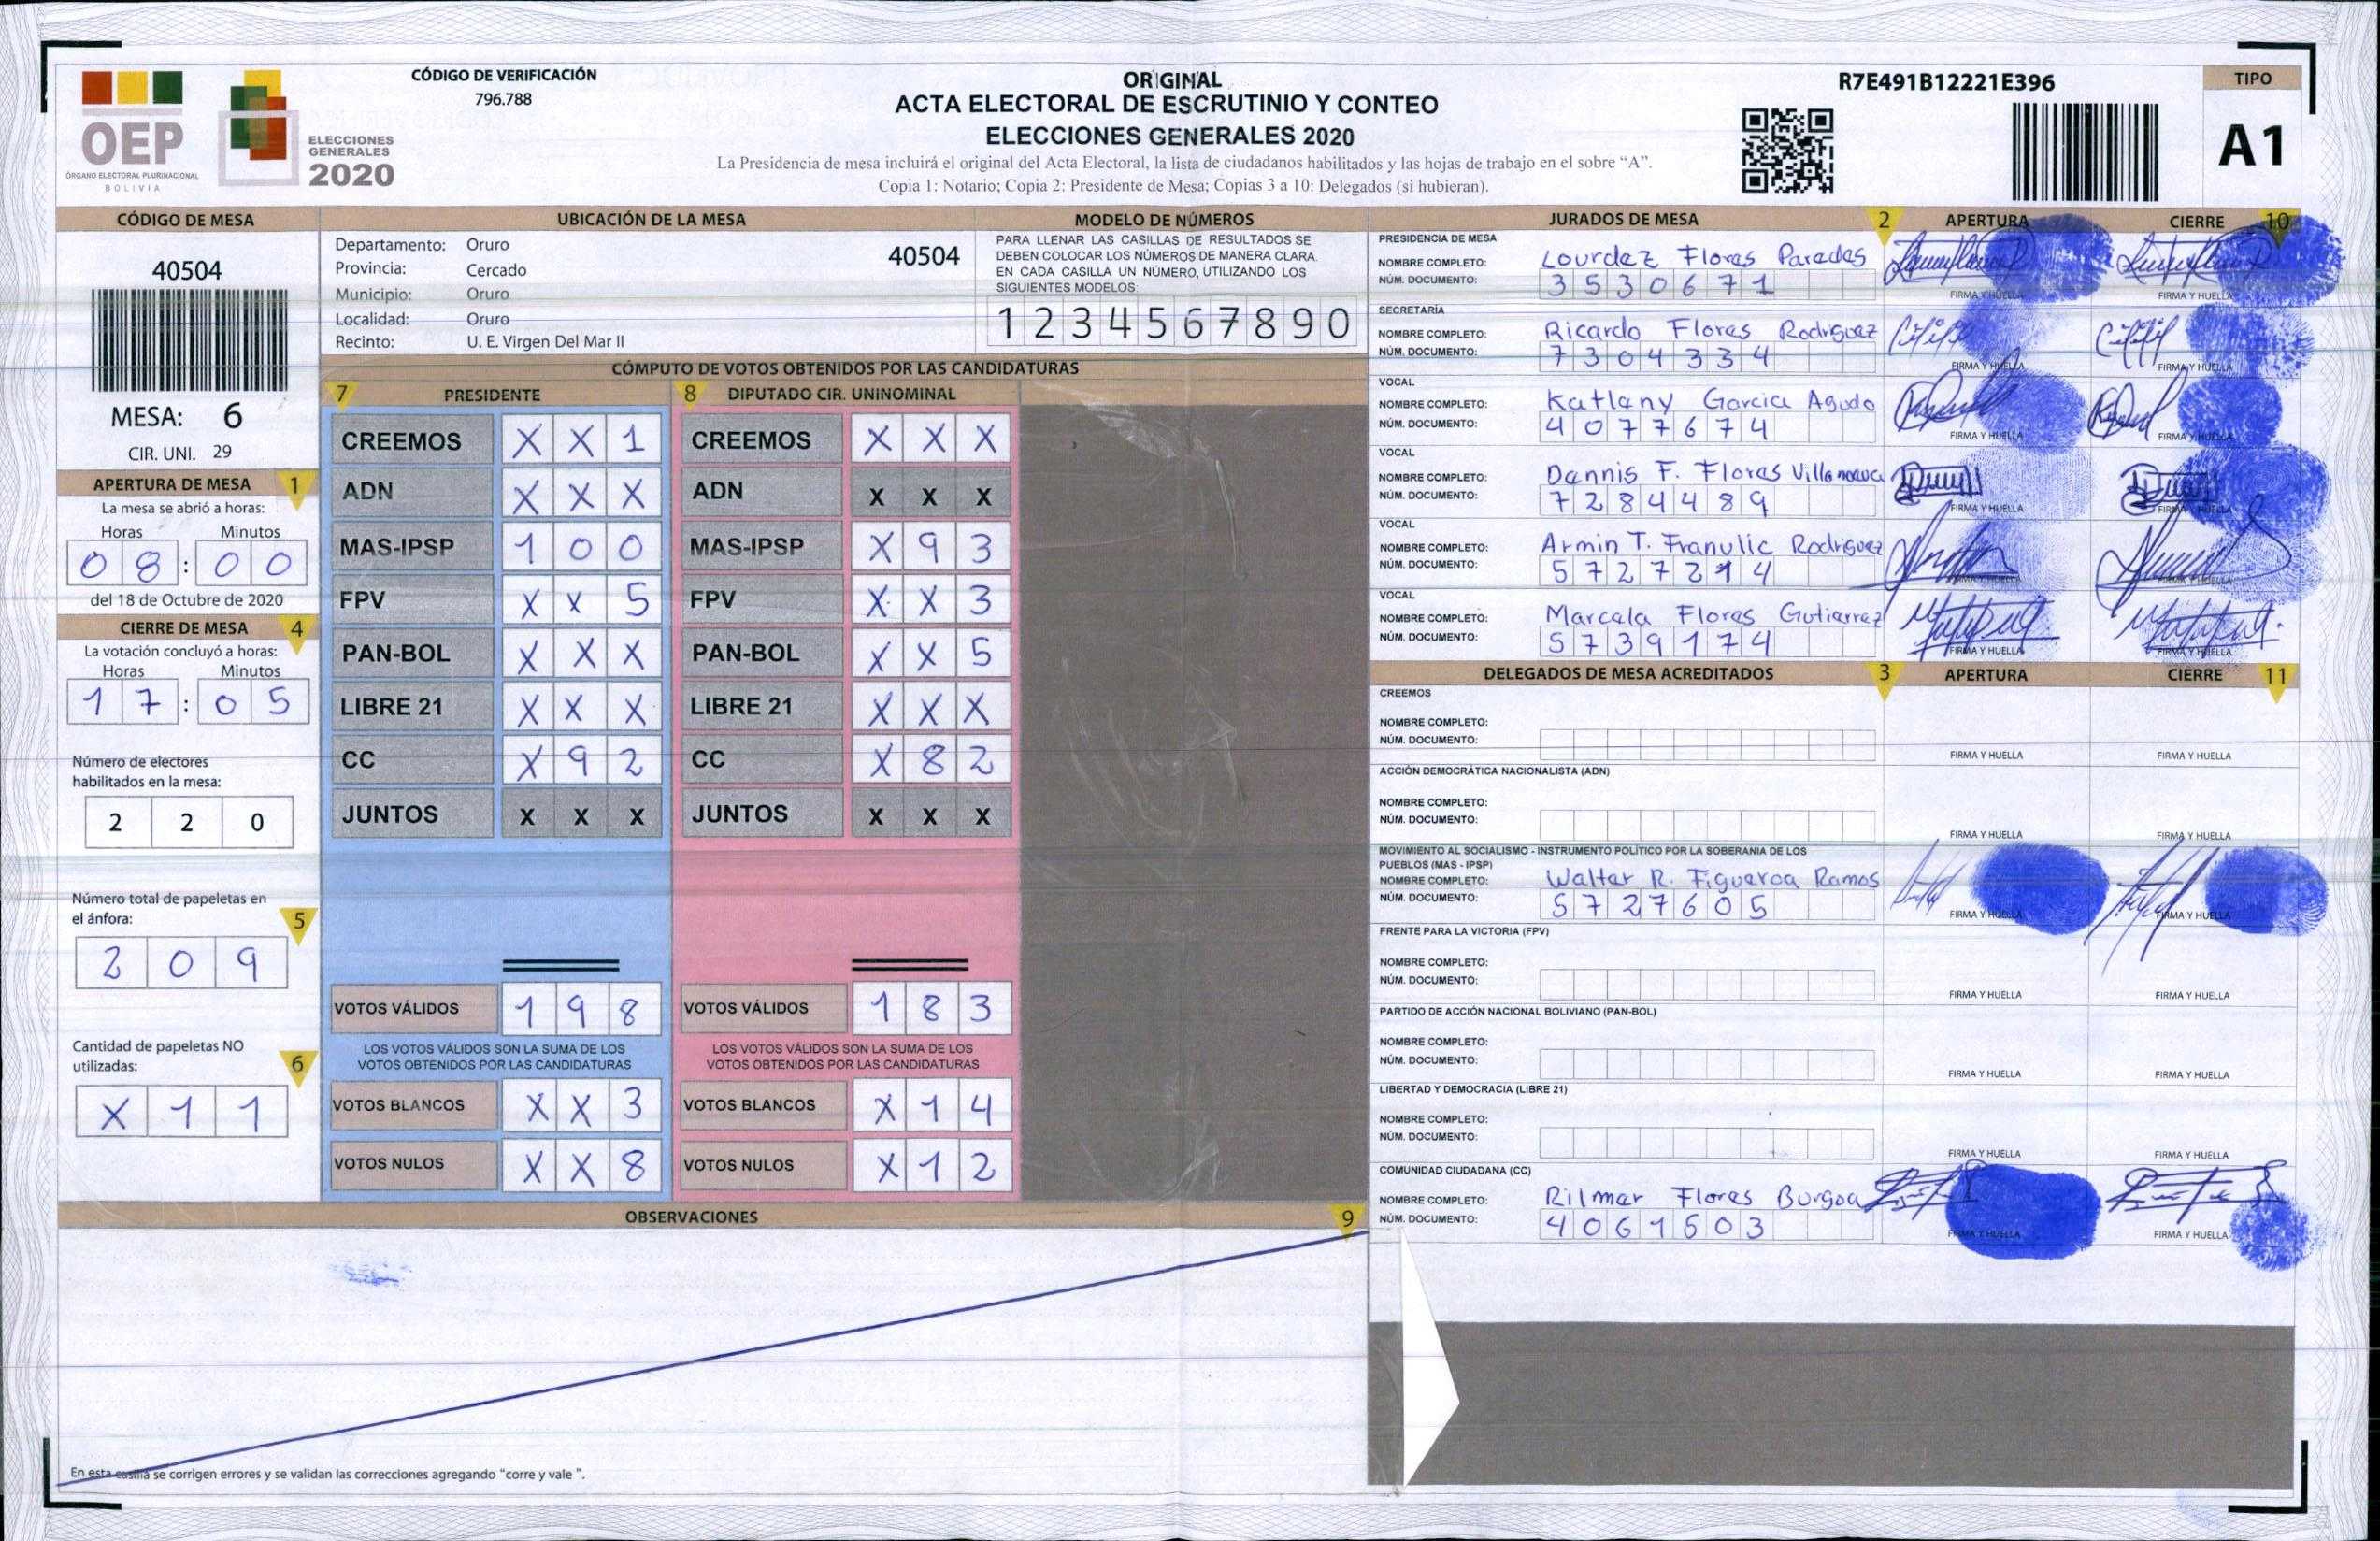 OEP
ÓRGANO ELECTORAL PLURINACIONAL
BOLIVIA
ELECCIONES
GENERALES
2020
CÓDIGO DE VERIFICACIÓN
796.788
ORIGINAL
ACTA ELECTORAL DE ESCRUTINIO Y CONTEO
ELECCIONES GENERALES 2020
La Presidencia de mesa incluirá el original del Acta Electoral, la lista de ciudadanos habilitados y las hojas de trabajo en el sobre “A”.
Copia 1: Notario; Copia 2: Presidente de Mesa; Copias 3 a 10: Delegados (si hubieran).
R7E491B12221E396
TIPO
A1
CÓDIGO DE MESA
40504
MESA: 6
CIR. UNI. 29
APERTURA DE MESA 1
La mesa se abrió a horas:
Horas Minutos
0 8 : 0 0
del 18 de Octubre de 2020
CIERRE DE MESA 4
La votación concluyó a horas:
Horas Minutos
1 7 : 0 5
Número de electores
habilitados en la mesa:
2 2 0
Número total de papeletas en
el ánfora: 5
2 0 9
Cantidad de papeletas NO
utilizadas: 6
X 1 1
UBICACIÓN DE LA MESA
Departamento: Oruro 40504
Provincia: Cercado
Municipio: Oruro
Localidad: Oruro
Recinto: U. E. Virgen Del Mar II
MODELO DE NÚMEROS
PARA LLENAR LAS CASILLAS DE RESULTADOS SE
DEBEN COLOCAR LOS NÚMEROS DE MANERA CLARA.
EN CADA CASILLA UN NÚMERO, UTILIZANDO LOS
SIGUIENTES MODELOS:
1 2 3 4 5 6 7 8 9 0
CÓMPUTO DE VOTOS OBTENIDOS POR LAS CANDIDATURAS
7 PRESIDENTE 8 DIPUTADO CIR. UNINOMINAL
CREEMOS X X 1 CREEMOS X X X
ADN X X X ADN X X X
MAS-IPSP 1 0 0 MAS-IPSP X 9 3
FPV X X 5 FPV X X 3
PAN-BOL X X X PAN-BOL X X 5
LIBRE 21 X X X LIBRE 21 X X X
CC X 9 2 CC X 8 2
JUNTOS X X X JUNTOS X X X
VOTOS VÁLIDOS 1 9 8 VOTOS VÁLIDOS 1 8 3
LOS VOTOS VÁLIDOS SON LA SUMA DE LOS LOS VOTOS VÁLIDOS SON LA SUMA DE LOS
VOTOS OBTENIDOS POR LAS CANDIDATURAS VOTOS OBTENIDOS POR LAS CANDIDATURAS
VOTOS BLANCOS X X 3 VOTOS BLANCOS X 1 4
VOTOS NULOS X X 8 VOTOS NULOS X 1 2
OBSERVACIONES 9
En esta casilla se corrigen errores y se validan las correcciones agregando “corre y vale ”.
JURADOS DE MESA 2 APERTURA CIERRE 10
PRESIDENCIA DE MESA
NOMBRE COMPLETO: Lourdez Flores Paredes
NÚM. DOCUMENTO: 3530671
FIRMA Y HUELLA FIRMA Y HUELLA
SECRETARÍA
NOMBRE COMPLETO: Ricardo Flores Rodriguez
NÚM. DOCUMENTO: 7304334
FIRMA Y HUELLA FIRMA Y HUELLA
VOCAL
NOMBRE COMPLETO: Katlany Garcia Agudo
NÚM. DOCUMENTO: 4077674
FIRMA Y HUELLA FIRMA Y HUELLA
VOCAL
NOMBRE COMPLETO: Dennis F. Flores
NÚM. DOCUMENTO: 7284489
FIRMA Y HUELLA FIRMA Y HUELLA
VOCAL
NOMBRE COMPLETO: Armin T. Franulic Rodriguez
NÚM. DOCUMENTO:
FIRMA Y HUELLA FIRMA Y HUELLA
VOCAL
NOMBRE COMPLETO: Marcela Flores Gutierrez
NÚM. DOCUMENTO: 5739174
FIRMA Y HUELLA FIRMA Y HUELLA
DELEGADOS DE MESA ACREDITADOS 3 APERTURA CIERRE 11
CREEMOS
NOMBRE COMPLETO:
NÚM. DOCUMENTO:
FIRMA Y HUELLA FIRMA Y HUELLA
ACCIÓN DEMOCRÁTICA NACIONALISTA (ADN)
NOMBRE COMPLETO:
NÚM. DOCUMENTO:
FIRMA Y HUELLA FIRMA Y HUELLA
MOVIMIENTO AL SOCIALISMO - INSTRUMENTO POLÍTICO POR LA SOBERANIA DE LOS
PUEBLOS (MAS - IPSP)
NOMBRE COMPLETO: Walter R. Figueroa Ramos
NÚM. DOCUMENTO: 5727605
FIRMA Y HUELLA FIRMA Y HUELLA
FRENTE PARA LA VICTORIA (FPV)
NOMBRE COMPLETO:
NÚM. DOCUMENTO:
FIRMA Y HUELLA FIRMA Y HUELLA
PARTIDO DE ACCIÓN NACIONAL BOLIVIANO (PAN-BOL)
NOMBRE COMPLETO:
NÚM. DOCUMENTO:
FIRMA Y HUELLA FIRMA Y HUELLA
LIBERTAD Y DEMOCRACIA (LIBRE 21)
NOMBRE COMPLETO:
NÚM. DOCUMENTO:
FIRMA Y HUELLA FIRMA Y HUELLA
COMUNIDAD CIUDADANA (CC)
NOMBRE COMPLETO: Rilmar Flores Burgoa
NÚM. DOCUMENTO: 4061503
FIRMA Y HUELLA FIRMA Y HUELLA